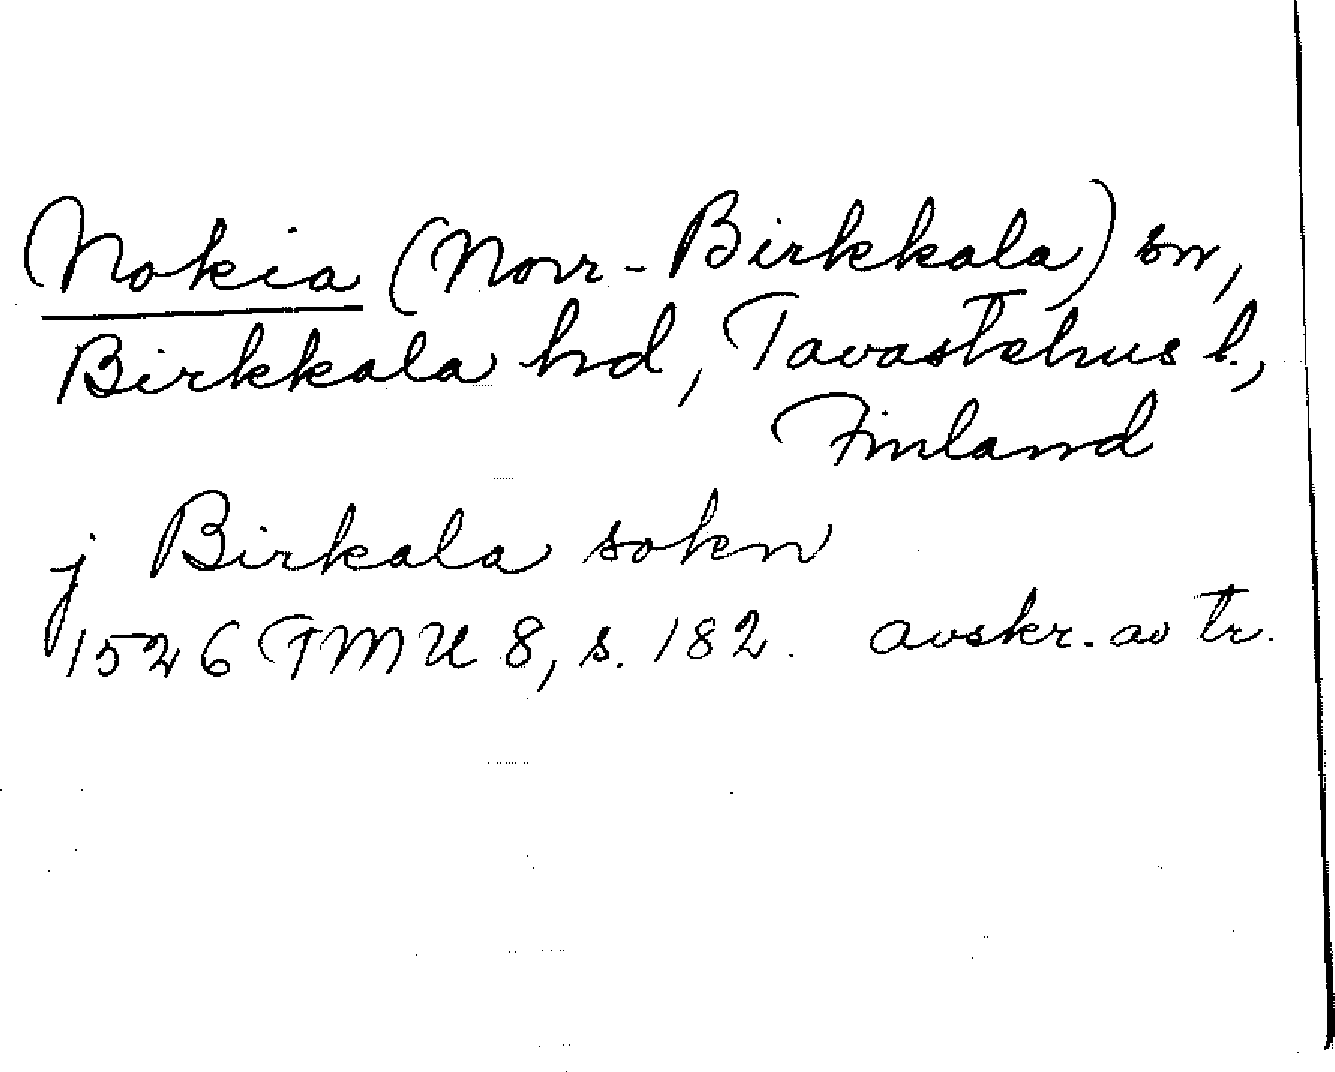 Nokia (Norr-Birkkala) sn,
Birkkala hd, Tavastehus l.,
Finland
j Birkala sokn
1526 TMU 8, s. 182. avskr. av tr.